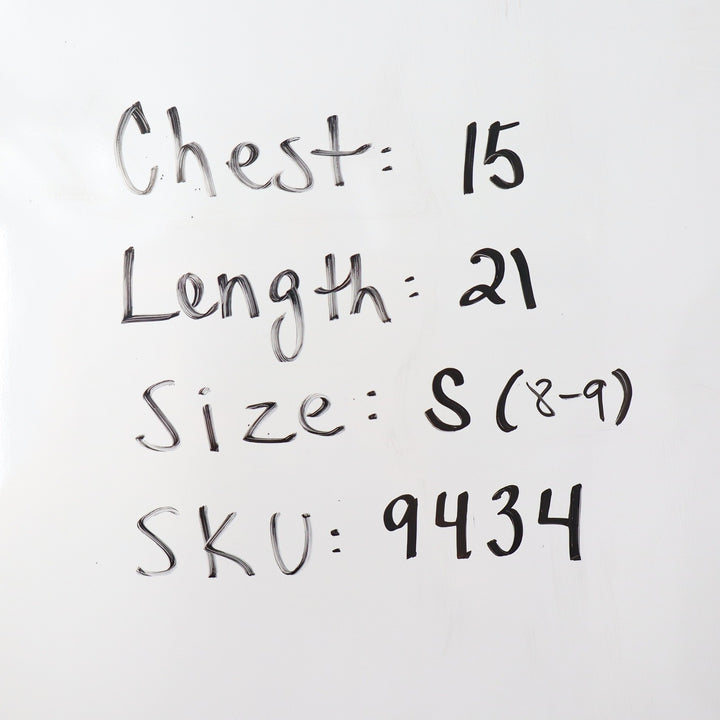 Chest: 15
Length: 21
Size: S (8-9)
SKU: 9434